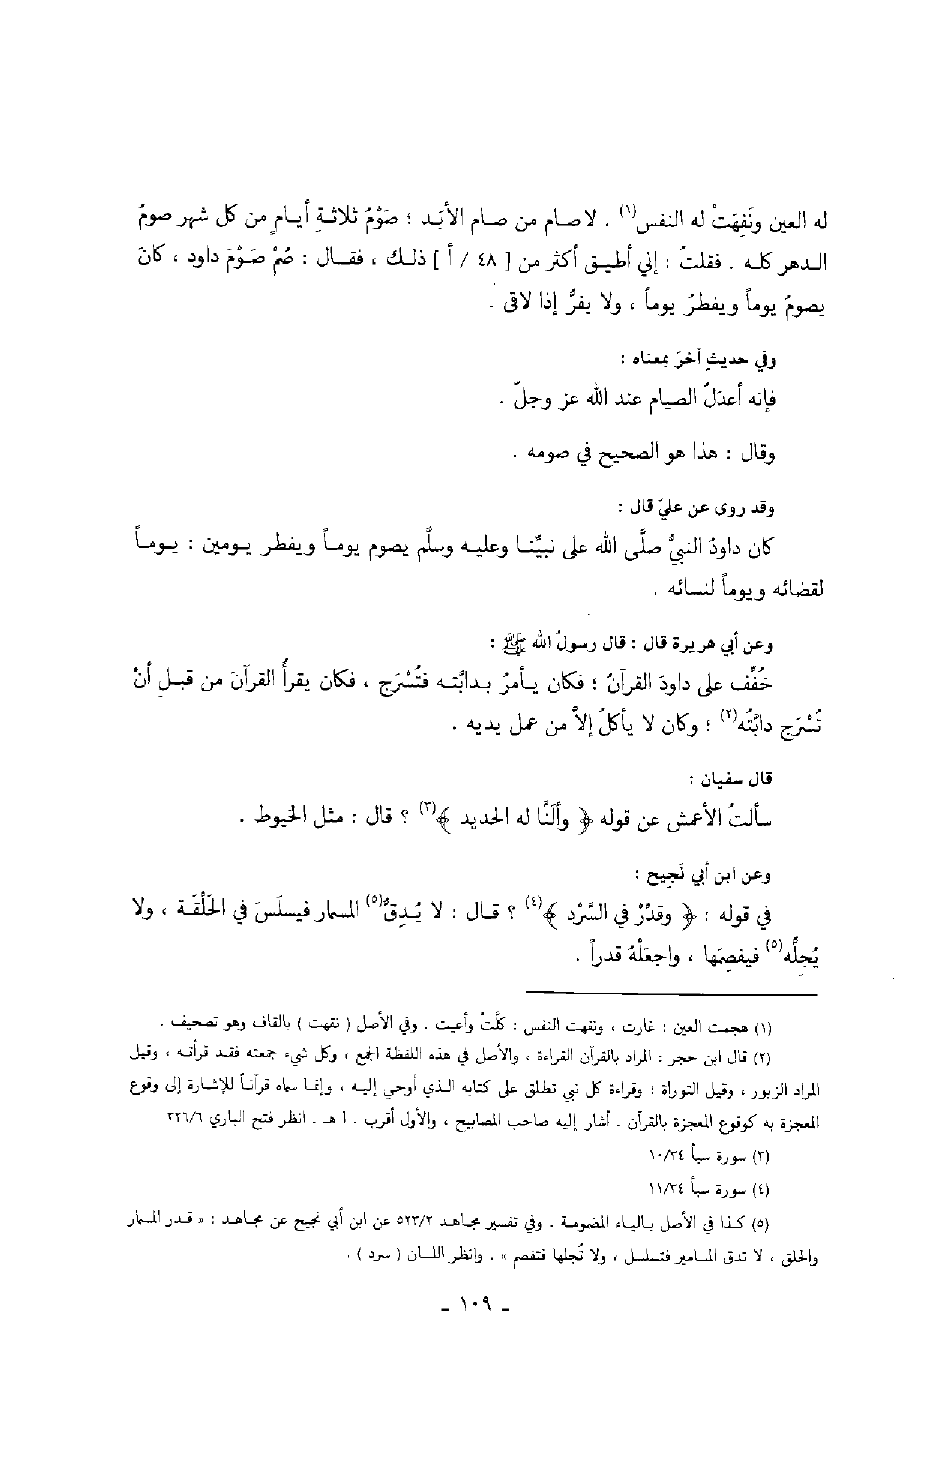 له العين ونَفِهَتْ له النفس(١) . لا صام من صام الأبَد ؛ صَوْمُ ثلاثةِ أيامٍ من كل شهر صومُ
الدهر كله . فقلتُ : إني أطيق أكثر من [ ٤٨ / أ ] ذلك ، فقال : صُمْ صَوْمَ داود ، كانَ
يصومُ يوماً ويفطرُ يوماً ، ولا يفرُّ إذا لاقى .
وفي حديثٍ آخرَ بمعناه :
فإنه أعدَلُ الصيام عند الله عز وجلّ .
وقال : هذا هو الصحيح في صومه .
وقد روي عن عليّ قال :
كان داودُ النبيُّ صلَّى الله على نبيِّنا وعليه وسلَّم يصوم يوماً ويفطر يومين : يوماً
لقضائه ويوماً لنسائه .
وعن أبي هريرة قال : قال رسولُ الله ﷺ :
خُفِّف على داودَ القرآنُ ؛ فكان يأمرُ بدابَّته فتُسْرَج ، فكان يقرأُ القرآنَ من قبلِ أنْ
تُسْرَج دابَّتُه(٢) ؛ وكان لا يأكلُ إلاَّ من عمل يديه .
قال سفيان :
سألتُ الأعمش عن قوله ﴿ وألَنَّا له الحديد ﴾(٣) ؟ قال : مثل الخيوط .
وعن ابن أبي نَجِيح :
في قوله : ﴿ وقدِّرْ في السَّرْد ﴾(٤) ؟ قال : لا يُدِقُّ(٥) المسمار فيسلَسَ في الحَلْقَة ، ولا
يُجِلَّه(٥) فيفصِمَها ، واجعَلْهُ قدراً .
(١) هجمت العين : غارت ، ونفهت النفس : كَلَّتْ وأعيت . وفي الأصل ( نقهت ) بالقاف وهو تصحيف .
(٢) قال ابن حجر : المراد بالقرآن القراءة ، والأصل في هذه اللفظة الجمع ، وكل شيء جمعته فقد قرأته ، وقيل
المراد الزبور ، وقيل التوراة ؛ وقراءة كل نبي تطلق على كتابه الذي أوحي إليه ، وإنما سماه قرآناً للإشارة إلى وقوع
المعجزة به كوقوع المعجزة بالقرآن . أشار إليه صاحب المصابيح ، والأول أقرب . ا هـ . انظر فتح الباري ٢٢٦/٦
(٣) سورة سبأ ١٠/٣٤
(٤) سورة سبأ ١١/٣٤
(٥) كذا في الأصل بالياء المضمومة . وفي تفسير مجاهد ٥٢٣/٢ عن ابن أبي نجيح عن مجاهد : « قدر المسمار
والحلق ، لا تدق المسامير فتسلسل ، ولا تُجلها فتفصم » . وانظر اللسان ( سرد ) .
- ١٠٩ -